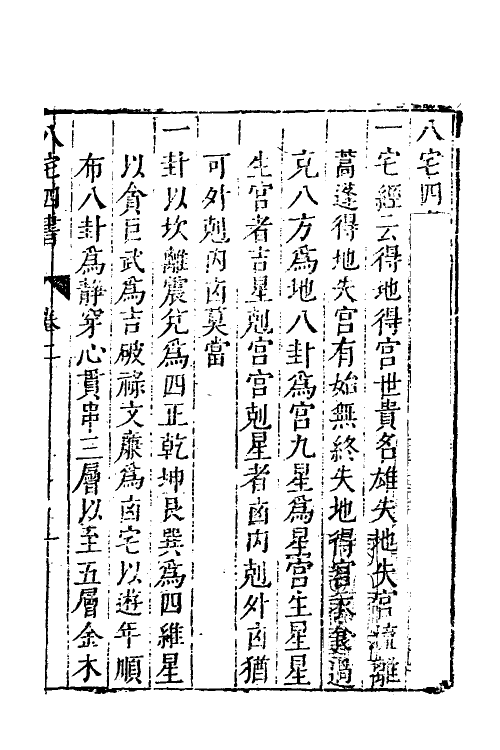 八宅四
一宅經云得地得宮世貴名雄失地失宮流離
蒿蓬得地失宮有始無終失地得宮衣食過
克八方爲地八卦爲宮九星爲星宮生星星
生宮者吉星剋宮宮剋星者㐫内剋外㐫猶
可外剋内㐫莫當
一卦以坎離震兌爲四正乾坤艮巽爲四維星
以貪巨武爲吉破祿文廉爲㐫宅以遊年順
布八卦爲靜穿心貫串三層以至五層金木
八宅四書
卷二